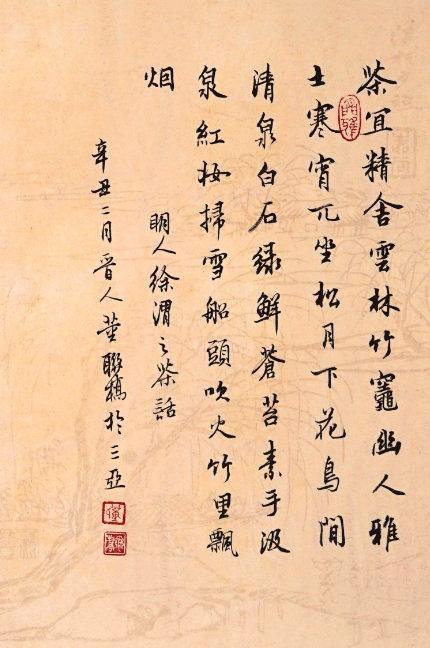 茶宜精舍雲林竹竈幽人雅
士寒宵兀坐松月下花鳥間
清泉白石綠鮮蒼苔素手汲
泉紅妝掃雪船頭吹火竹里飄
烟
明人徐渭之茶話
辛丑二月晋人董聯橋於三亞